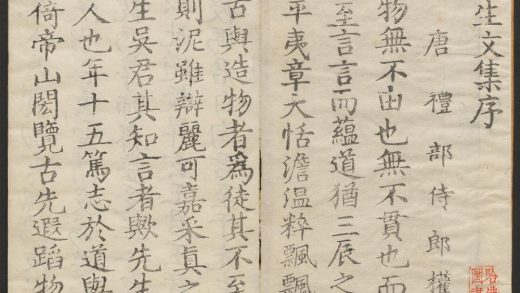 生文集序
唐禮部侍郎權
物無不由也無不貫也而
至言言而蘊道猶三辰之
平夷章大恬澹溫粹飄飄
古與造物者爲徒其不至
則泥雖辯麗可嘉采真之
生吳君其知言者歟先生
人也年十五篤志於道與
倚帝山閎覽古先遐蹈物
哈佛
圖書